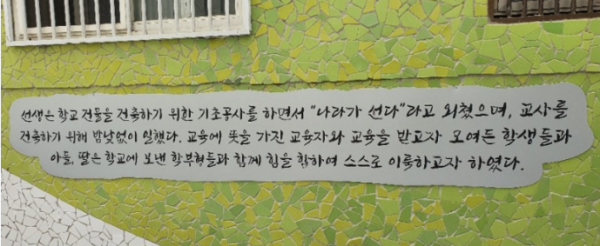 선생은 학교 건물을 건축하기 위한 기초공사를 하면서 "나라가 선다"라고 외쳤으며, 교사를
건축하기 위해 밤낮없이 일했다. 교육에 뜻을 가진 교육자와 교육을 받고자 모여든 학생들과
아들, 딸을 학교에 보낸 학부형들과 함께 힘을 합하여 스스로 이룩하고자 하였다.